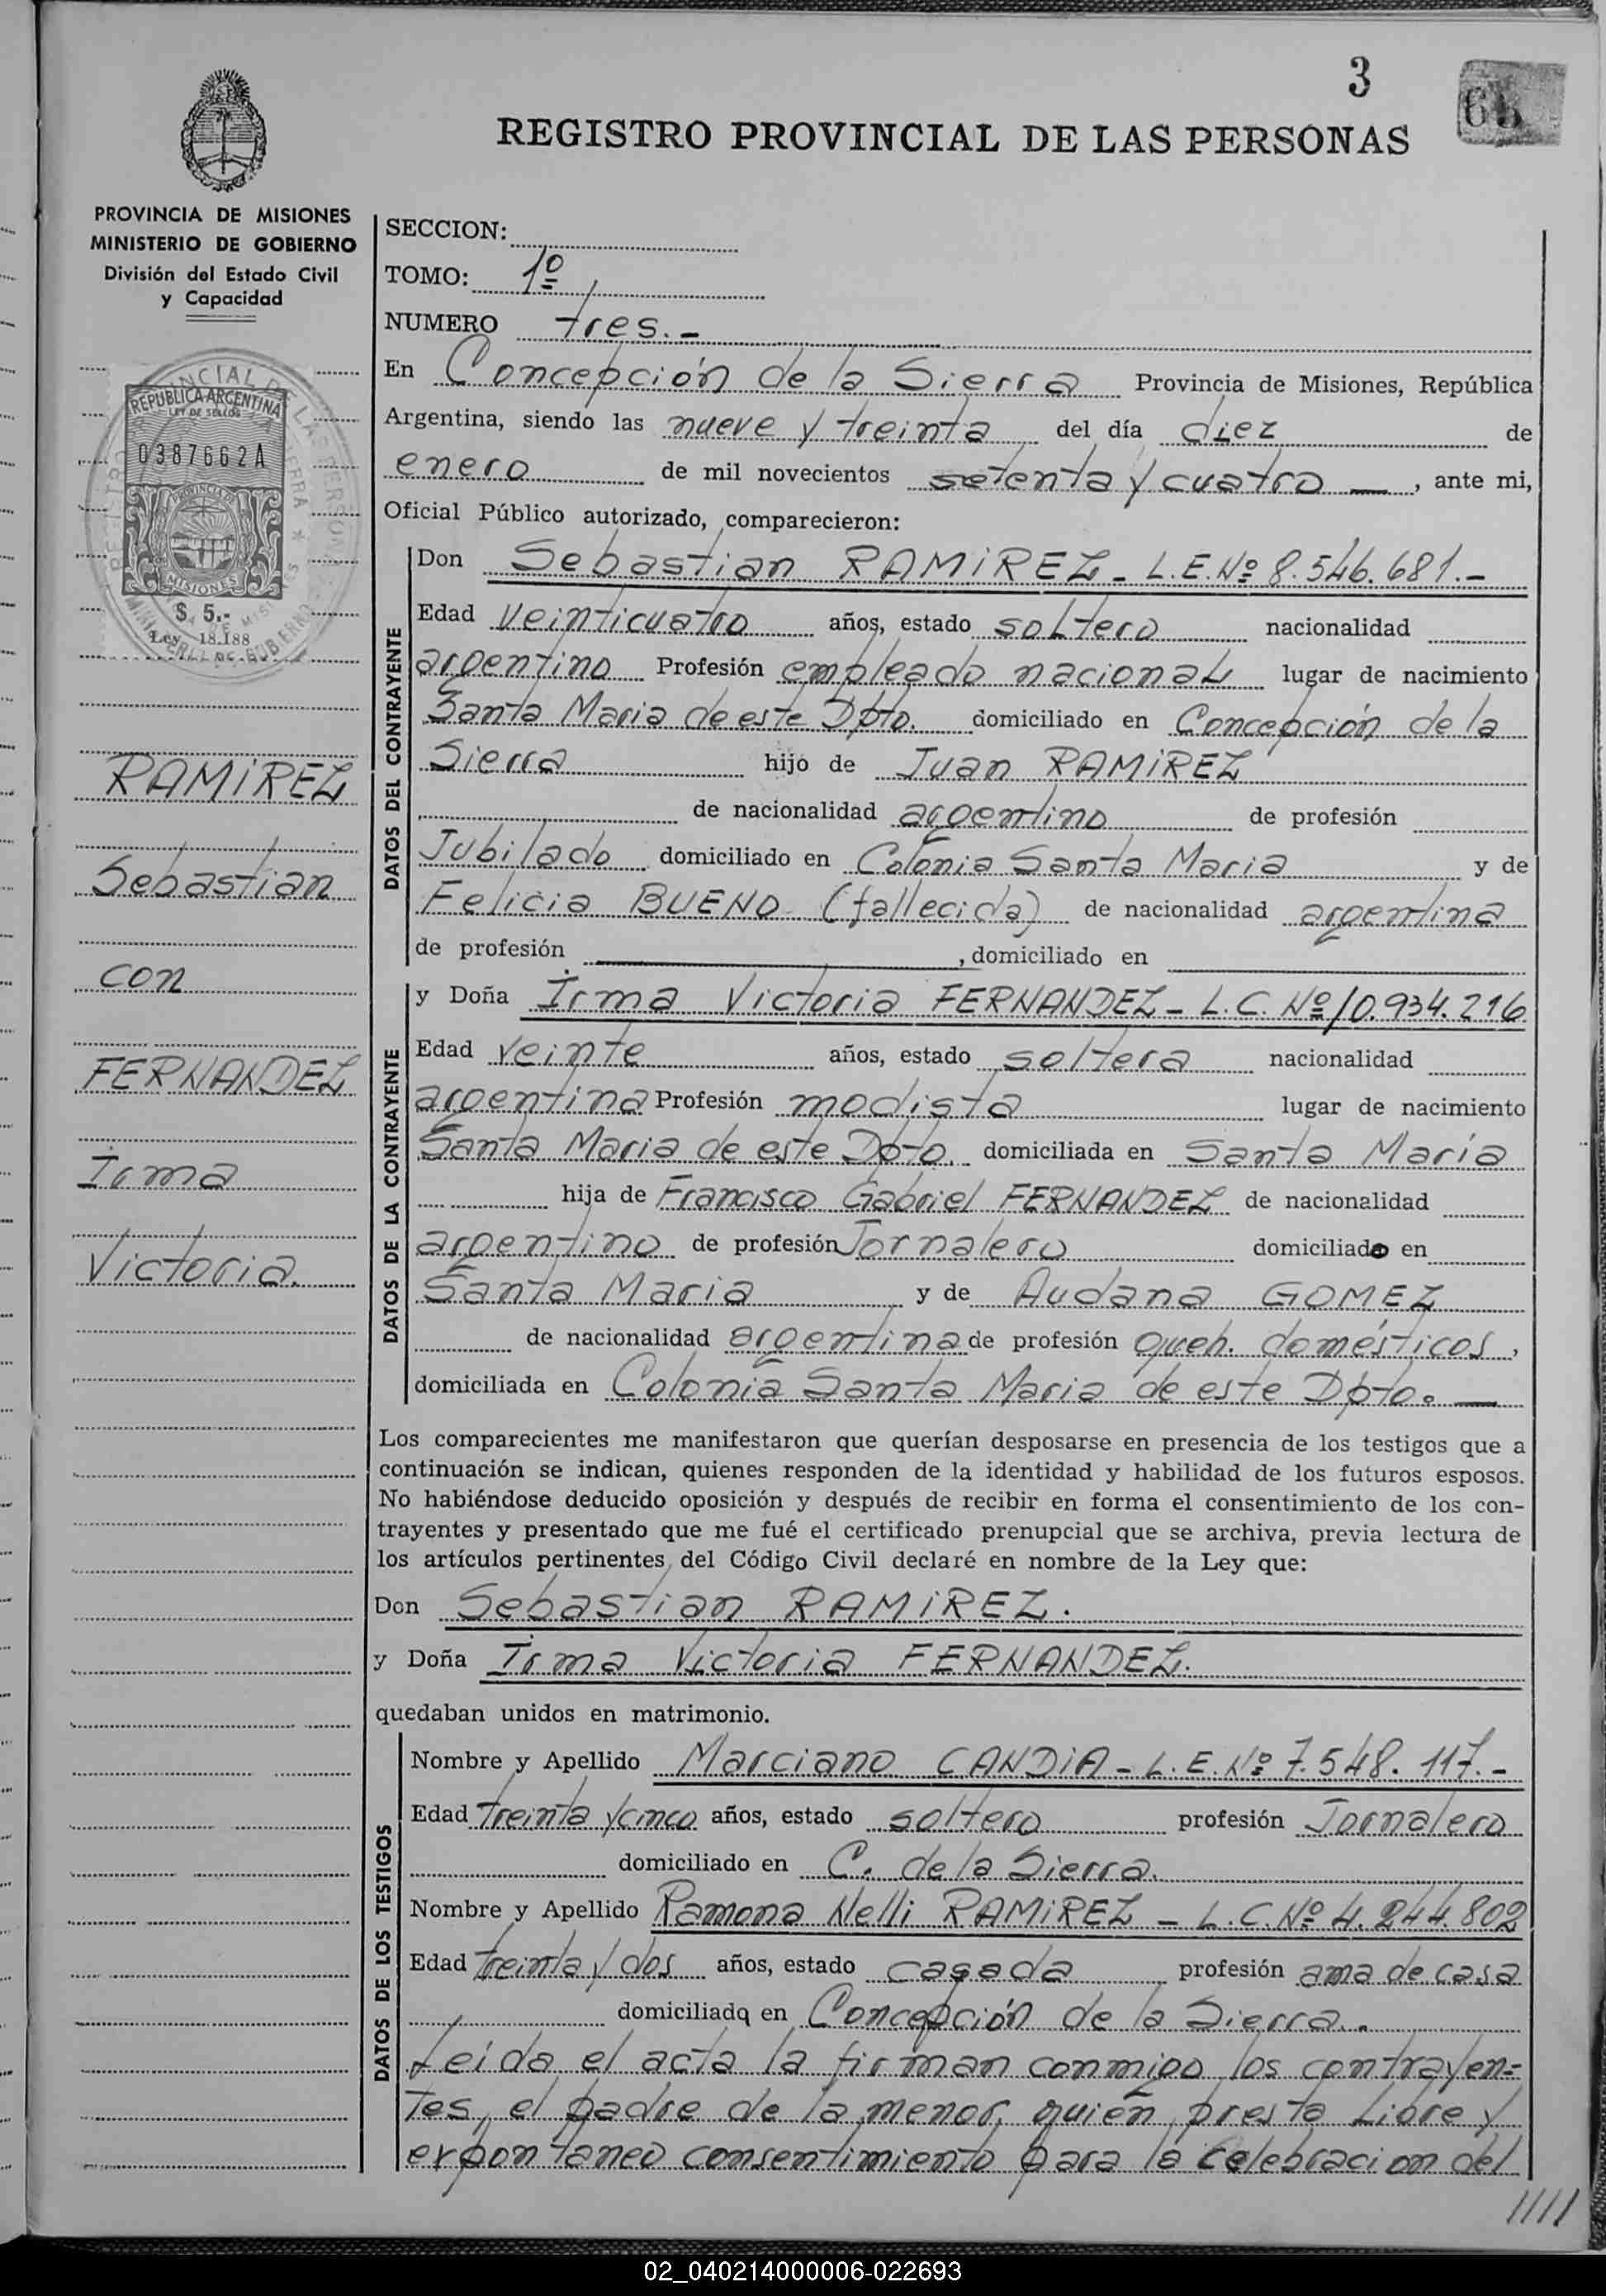 3
REGISTRO PROVINCIAL DE LAS PERSONAS
PROVINCIA DE MISIONES
MINISTERIO DE GOBIERNO
División del Estado Civil
y Capacidad
REPUBLICA ARGENTINA
LEY DE SELLOS
0387662A
PROVINCIA DE
MISIONES
$ 5.-
Ley 18.188
RAMIREZ
Sebastian
con
FERNANDEZ
Irma
Victoria.
SECCION:
TOMO: 1º
NUMERO tres.-
En Concepción de la Sierra Provincia de Misiones, República
Argentina, siendo las nueve y treinta del día diez de
enero de mil novecientos setenta y cuatro —, ante mi,
Oficial Público autorizado, comparecieron:
DATOS DEL CONTRAYENTE
Don Sebastian RAMIREZ - L.E.Nº 8.546.681.-
Edad veinticuatro años, estado soltero nacionalidad
argentino Profesión empleado nacional lugar de nacimiento
Santa Maria de este Dpto. domiciliado en Concepción de la
Sierra hijo de Juan RAMIREZ
de nacionalidad argentino de profesión
Jubilado domiciliado en Colonia Santa Maria y de
Felicia BUENO (fallecida) de nacionalidad argentina
de profesión , domiciliado en
DATOS DE LA CONTRAYENTE
y Doña Irma Victoria FERNANDEZ - L.C. Nº 10.934.216
Edad veinte años, estado soltera nacionalidad
argentina Profesión modista lugar de nacimiento
Santa Maria de este Dpto. domiciliada en Santa María
hija de Francisco Gabriel FERNANDEZ de nacionalidad
argentino de profesión Jornalero domiciliado en
Santa Maria y de Audana GOMEZ
de nacionalidad argentina de profesión queh. domésticos,
domiciliada en Colonia Santa Maria de este Dpto. —
Los comparecientes me manifestaron que querían desposarse en presencia de los testigos que a
continuación se indican, quienes responden de la identidad y habilidad de los futuros esposos.
No habiéndose deducido oposición y después de recibir en forma el consentimiento de los con-
trayentes y presentado que me fué el certificado prenupcial que se archiva, previa lectura de
los artículos pertinentes del Código Civil declaré en nombre de la Ley que:
Don Sebastian RAMIREZ.
y Doña Irma Victoria FERNANDEZ.
quedaban unidos en matrimonio.
DATOS DE LOS TESTIGOS
Nombre y Apellido Marciano CANDIA - L.E.Nº 7.548.117.-
Edad Treinta y cinco años, estado soltero profesión Jornalero
domiciliado en C. de la Sierra.
Nombre y Apellido Ramona Nelli RAMIREZ - L.C.Nº 4.244.802
Edad treinta y dos años, estado casada profesión ama de casa
domiciliada en Concepción de la Sierra.
Leida el acta la firman conmigo los contrayen=
tes, el padre de la menor, quien presta Libre y
expontaneo consentimiento para la celebracion del
////
02_040214000006-022693